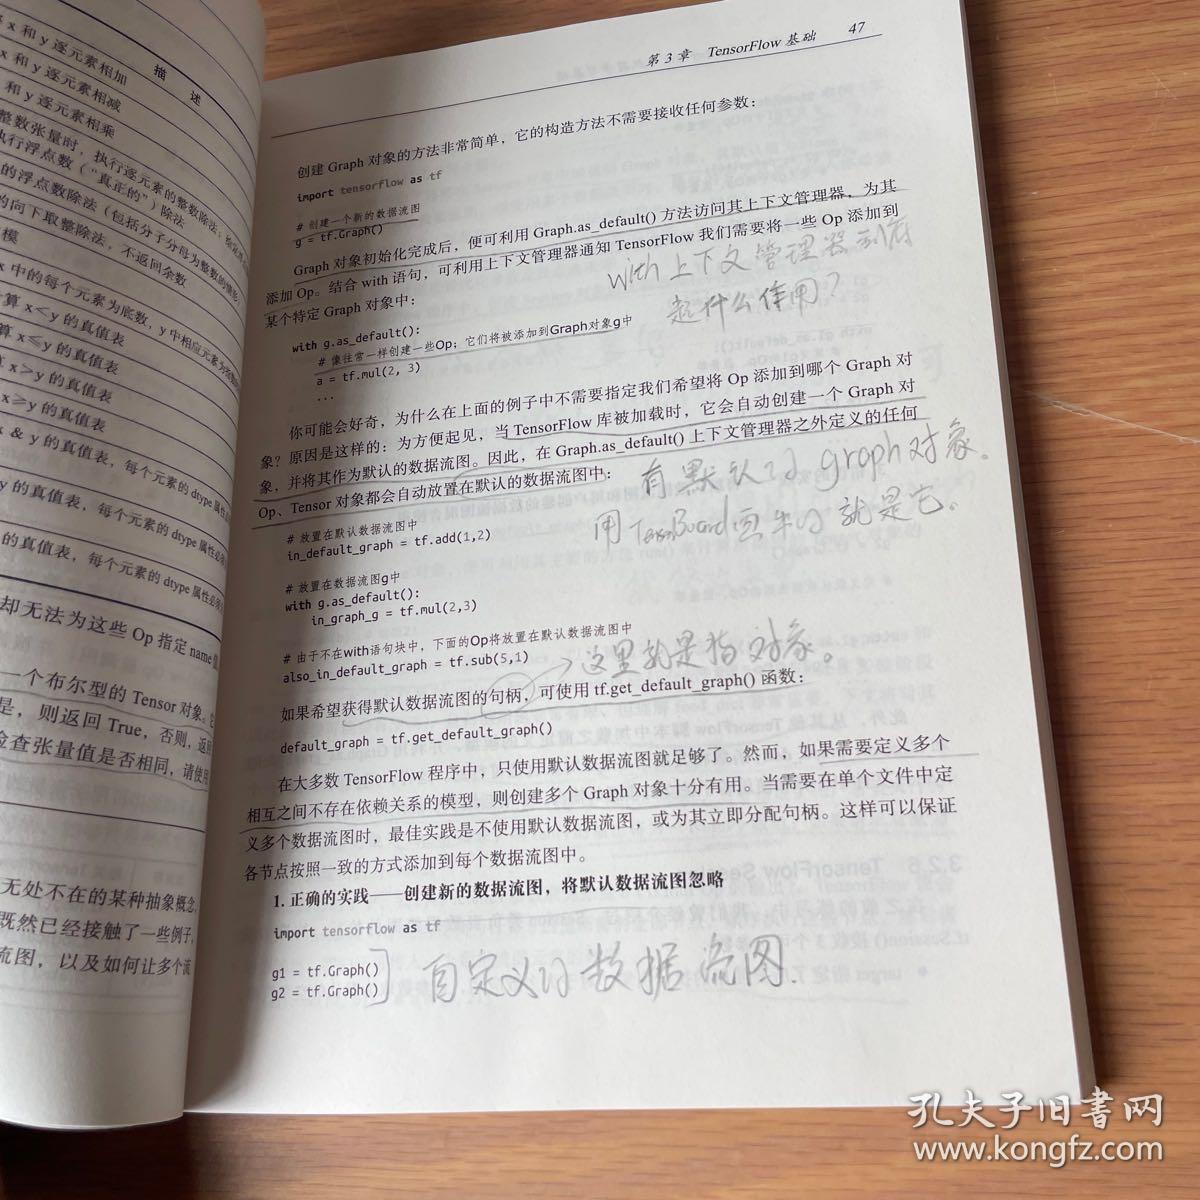 描 述
x 和 y 逐元素相加
x 和 y 逐元素相减
和 y 逐元素相乘
整数张量时，执行逐元素的整数除法；给定浮点
执行浮点数（“真正的”）除法
的浮点数除法（包括分子分母为整数的情形
的向下取整除法，不返回余数
模
x 中的每个元素为底数，y 中相应元素为
算 x＜y 的真值表
算 x≤y 的真值表
x＞y 的真值表
x≥y 的真值表
x & y 的真值表，每个元素的 dtype 属性必
y 的真值表，每个元素的 dtype 属性必须
的真值表，每个元素的 dtype 属性必须
却无法为这些 Op 指定 name 值
一个布尔型的 Tensor 对象。
是，则返回 True，否则，返回
检查张量值是否相同，请使用
无处不在的某种抽象概念，
既然已经接触了一些例子，
流图，以及如何让多个流
第 3 章 TensorFlow 基础 47
创建 Graph 对象的方法非常简单，它的构造方法不需要接收任何参数：
import tensorflow as tf
# 创建一个新的数据流图
g = tf.Graph()
Graph 对象初始化完成后，便可利用 Graph.as_default() 方法访问其上下文管理器，为其
添加 Op。结合 with 语句，可利用上下文管理器通知 TensorFlow 我们需要将一些 Op 添加到
某个特定 Graph 对象中：
with上下文管理器到底
起什么作用？
with g.as_default():
# 像往常一样创建一些Op；它们将被添加到Graph对象g中
a = tf.mul(2, 3)
...
你可能会好奇，为什么在上面的例子中不需要指定我们希望将 Op 添加到哪个 Graph 对
象？原因是这样的：为方便起见，当 TensorFlow 库被加载时，它会自动创建一个 Graph 对
象，并将其作为默认的数据流图。因此，在 Graph.as_default() 上下文管理器之外定义的任何
Op、Tensor 对象都会自动放置在默认的数据流图中：
有默认的graph对象。
用TensorBoard画出的就是它。
# 放置在默认数据流图中
in_default_graph = tf.add(1,2)
# 放置在数据流图g中
with g.as_default():
in_graph_g = tf.mul(2,3)
# 由于不在with语句块中，下面的Op将放置在默认数据流图中
also_in_default_graph = tf.sub(5,1)
这里就是指对象。
如果希望获得默认数据流图的句柄，可使用 tf.get_default_graph() 函数：
default_graph = tf.get_default_graph()
在大多数 TensorFlow 程序中，只使用默认数据流图就足够了。然而，如果需要定义多个
相互之间不存在依赖关系的模型，则创建多个 Graph 对象十分有用。当需要在单个文件中定
义多个数据流图时，最佳实践是不使用默认数据流图，或为其立即分配句柄。这样可以保证
各节点按照一致的方式添加到每个数据流图中。
1. 正确的实践——创建新的数据流图，将默认数据流图忽略
import tensorflow as tf
g1 = tf.Graph()
g2 = tf.Graph()
自定义的数据流图.
孔夫子旧书网
www.kongfz.com